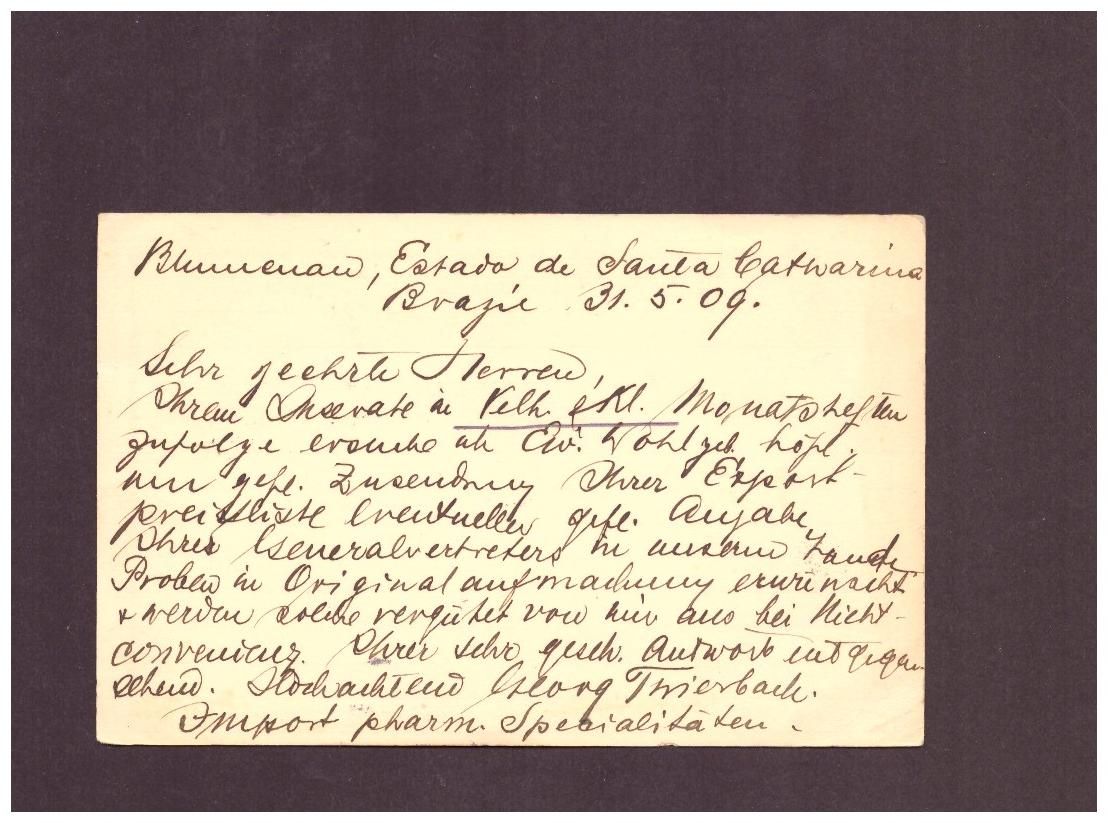 Blumenau, Estado de Santa Catharina
Brazil 31. 5. 09.
Sehr geehrte Herren,
Ihrem Inserate in Velh. & Kl. Monatsheften
zufolge ersuche ich Ew. Wohlgeb. höfl.
um gefl. Zusendung Ihrer Export-
preisliste eventueller gefl. Angabe
Ihres Generalvertreters in unserm Lande
Proben in Originalaufmachung erwünscht
& werden solche vergütet von mir aus bei Nicht-
convenienz. Ihrer sehr gesch. Antwort entgegen
sehend. Hochachtend Georg Thierbach.
Import pharm. Specialitäten.